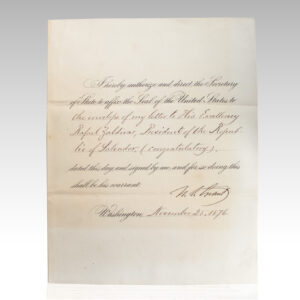 I hereby authorize and direct the Secretary
of State to affix the Seal of the United States to
the envelope of my letter to His Excellency
Rafael Zaldivar, President of the Repub-
lic of Salvador, (congratulatory),
dated this day, and signed by me, and for so doing this
shall be his warrant.
U. S. Grant
Washington, November 20, 1876.